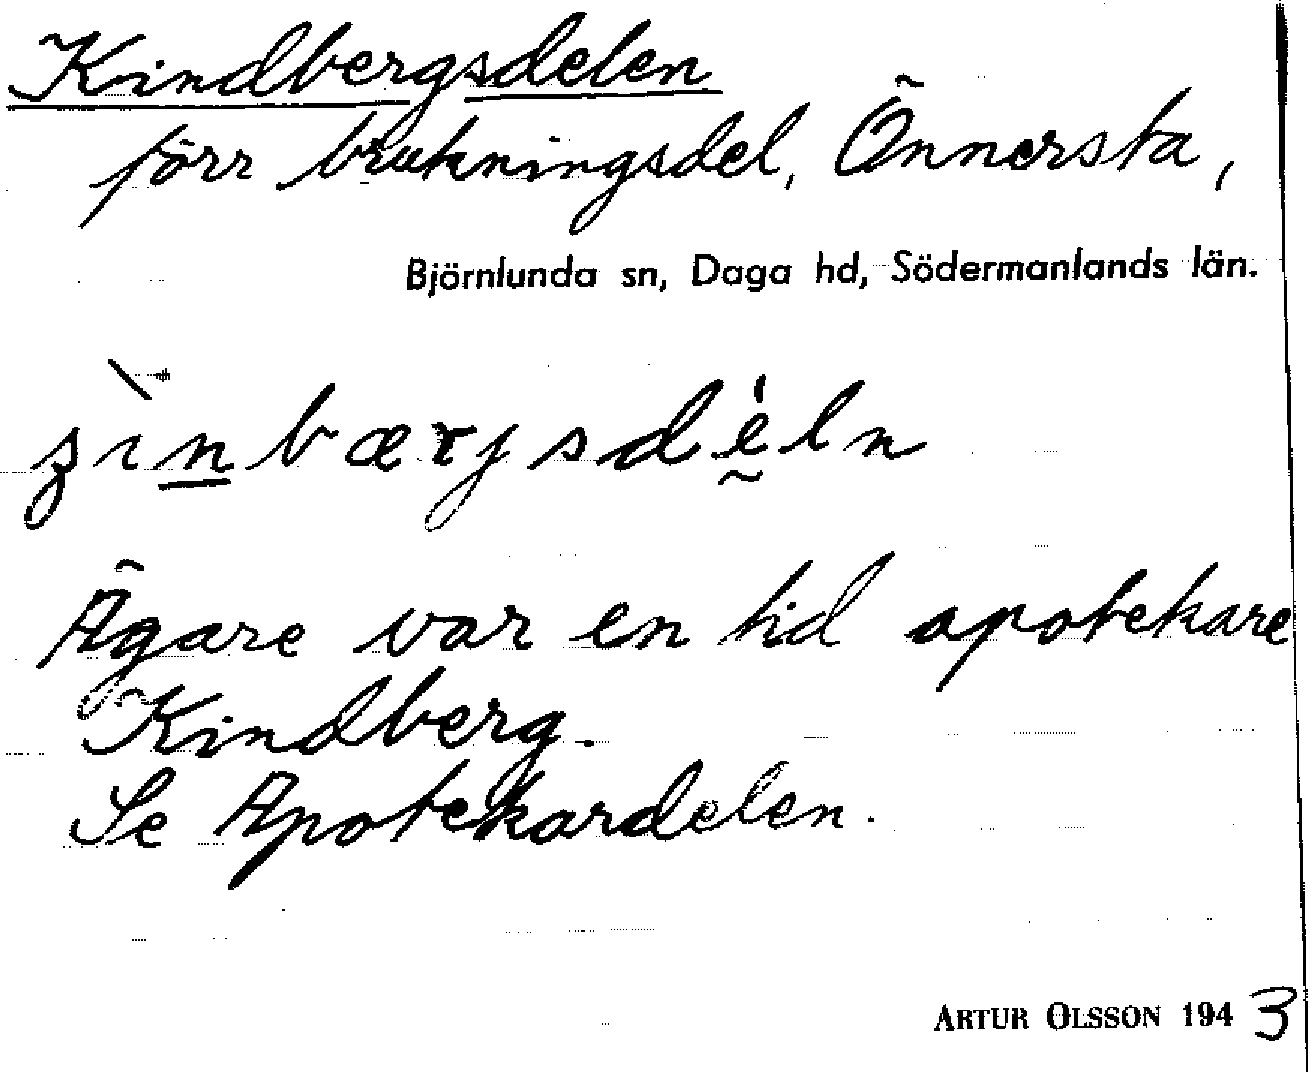 Kindbergsdelen
förr brukningsdel, Önnersta,
Björnlunda sn, Daga hd, Södermanlands län.
Ägare var en tid apotekare
Kindberg.
Se Apotekardelen.
ARTUR OLSSON 1943